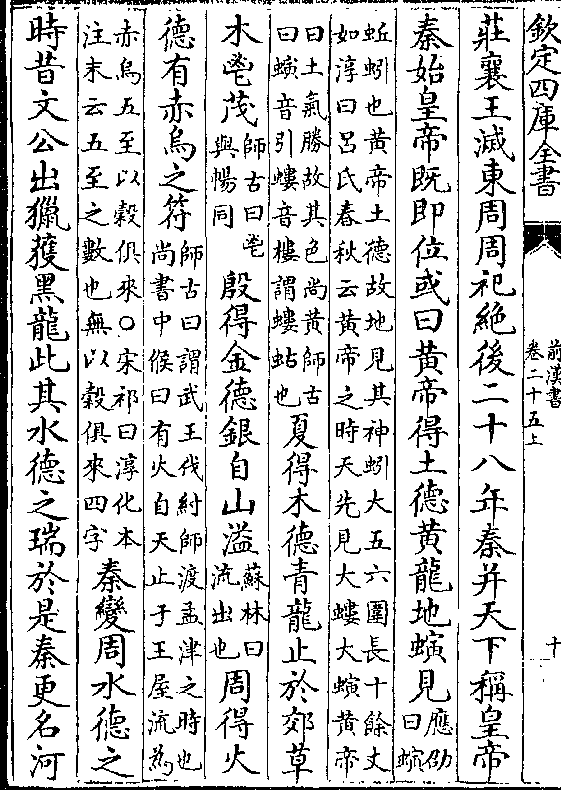 欽定四庫全書
前漢書
卷二十五上
十
莊襄王滅東周周祀絶後二十八年秦并天下稱皇帝
秦始皇帝既即位或曰黄帝得土德黄龍地螾見應劭曰螾
蚯蚓也黄帝土德故地見其神蚓大五六圍長十餘丈
如淳曰吕氏春秋云黄帝之時天先見大螻大螾黄帝
曰土氣勝故其色尚黄師古
曰螾音引螻音樓謂螻蛄也
夏得木德青龍止於郊草
木鬯茂師古曰鬯與暢同殷得金德銀自山溢蘇林曰流出也周得火
德有赤烏之符師古曰謂武王伐紂師渡孟津之時也
尚書中候曰有火自天止于王屋流為
赤烏五至以榖俱來○宋祁曰淳化本
注末云五至之數也無以榖俱來四字
秦變周水德之
時昔文公出獵獲黑龍此其水德之瑞於是秦更名河